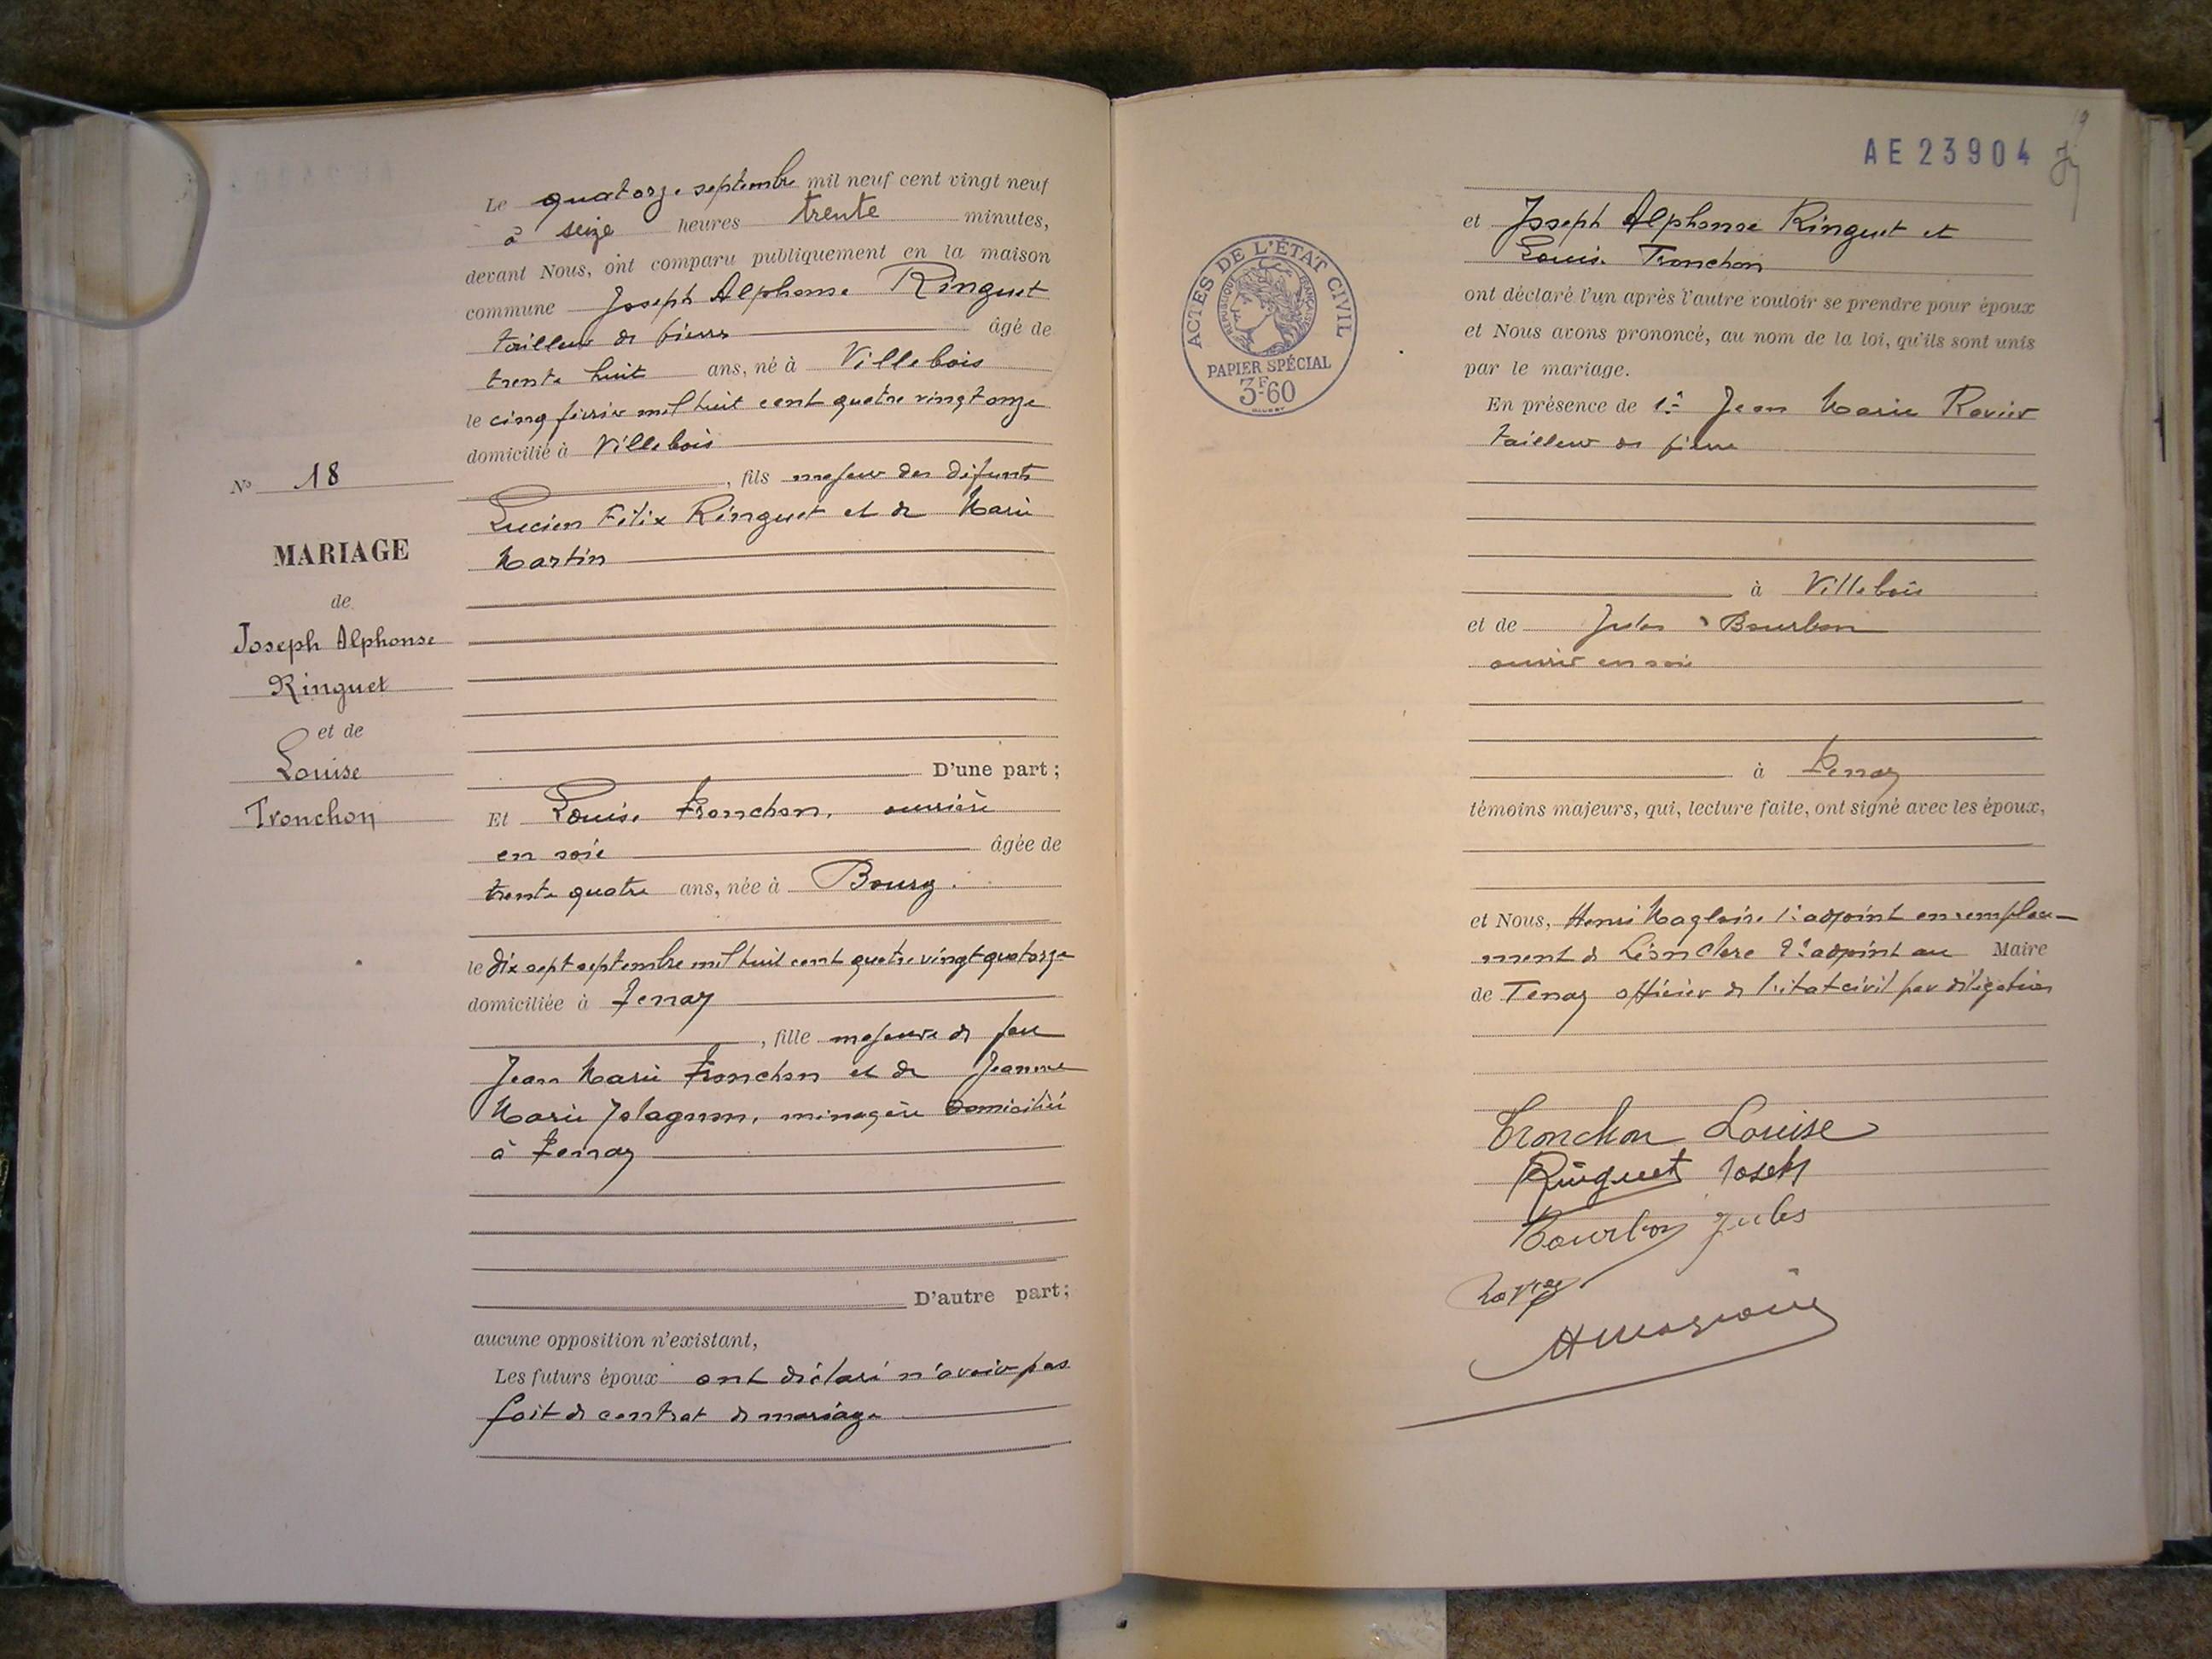 Le quatorze septembre mil neuf cent vingt neuf
à seize heures trente minutes,
devant Nous, ont comparu publiquement en la maison
commune Joseph Alphonse Ringuet
tailleur de pierre âgé de
trente huit ans, né à Villebois
le cinq février mil huit cent quatre vingt onze
domicilié à Villebois
, fils majeur des défunts
Lucien Félix Ringuet et de Marie
Martin
D'une part ;
N° 18
MARIAGE
de
Joseph Alphonse
Ringuet
et de
Louise
Tronchon
Et Louise Tronchon, ouvrière
en soie âgée de
trente quatre ans, née à Bourg
le dix sept septembre mil huit cent quatre vingt quatorze
domiciliée à Tenay
, fille majeure de feu
Jean Marie Tronchon et de Jeanne
Marie, ménagère domiciliée
à Tenay
D'autre part ;
aucune opposition n'existant,
Les futurs époux ont déclaré n'avoir pas
fait de contrat de mariage
AE 23904
ACTES DE L'ÉTAT CIVIL
RÉPUBLIQUE FRANÇAISE
PAPIER SPÉCIAL
3F60
et Joseph Alphonse Ringuet et
Louise Tronchon
ont déclaré l'un après l'autre vouloir se prendre pour époux
et Nous avons prononcé, au nom de la loi, qu'ils sont unis
par le mariage.
En présence de 1° Jean Marie Ravier
tailleur de pierre
à Villebois
et de Jules Bourbon
ouvrier en soie
à Tenay
témoins majeurs, qui, lecture faite, ont signé avec les époux,
et Nous, Henri Magloire 1er adjoint en remplace-
ment de Léon Clerc 2e adjoint au Maire
de Tenay officier de l'état civil par délégation
Tronchon Louise
Ringuet Joseph
Bourbon Jules
Ravier
HMagloire